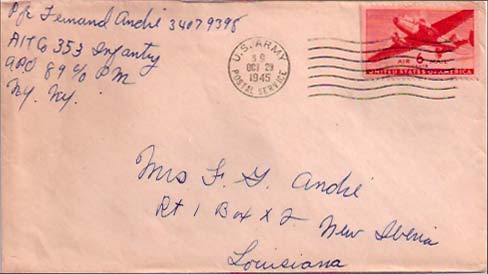 Pfc Fernand André 34079398
AT Co 353 Infantry
APO 89 c/o P M
NY. NY.
U.S. ARMY
OCT 29
1945
POSTAL SERVICE
6
AIR MAIL
UNITED STATES OF AMERICA
Mrs F. G. André
Rt 1 Box x 2 New Iberia
Louisiana